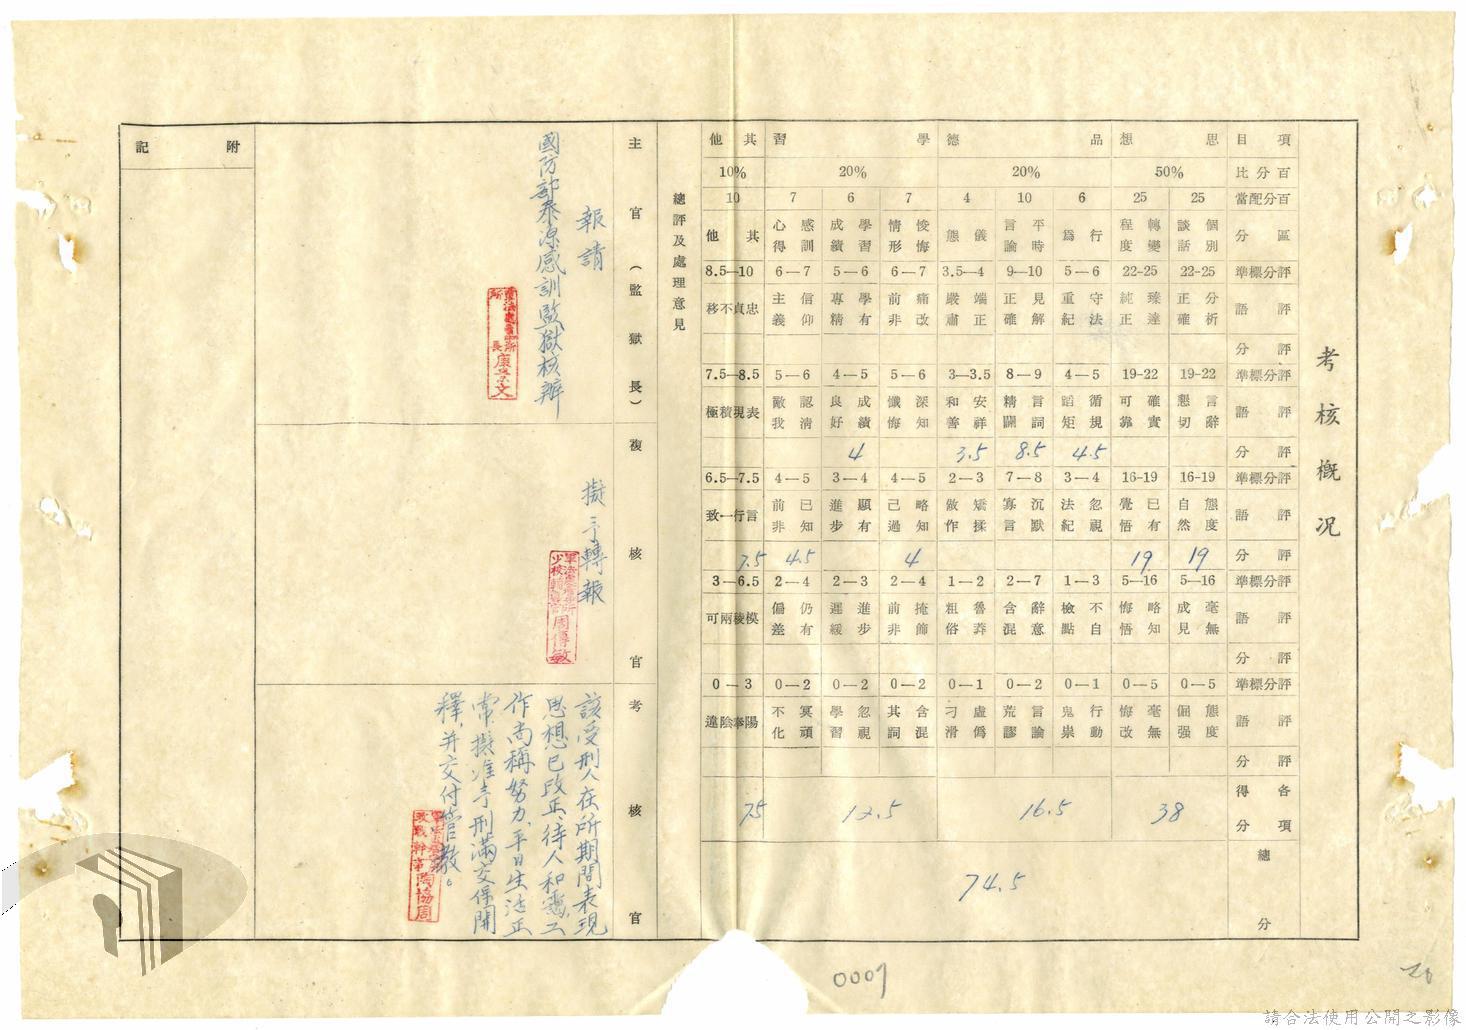 考核概況
項目 思想 品德 學習 其他
百分比 50% 20% 20% 10%
百分配當 25 25 6 10 4 7 6 7 10
區分 個別談話 轉變程度 行為 平時言論 儀態 悛悔情形 學習成績 感訓心得 其他
評分標準 22-25 22-25 5—6 9—10 3.5—4 6—7 5—6 6—7 8.5—10
評語 分析正確 臻達純正 守法重紀 見解正確 端正嚴肅 痛改前非 學有專精 信仰主義 忠貞不移
評分
評分標準 19-22 19-22 4—5 8—9 3—3.5 5—6 4—5 5—6 7.5—8.5
評語 言辭懇切 確實可靠 循規蹈矩 言詞精闢 安祥和善 深知懺悔 成績良好 認清敵我 表現積極
評分 4.5 8.5 3.5 4
評分標準 16-19 16-19 3—4 7—8 2—3 4—5 3—4 4—5 6.5—7.5
評語 態度自然 已有覺悟 忽視法紀 沉默寡言 矯揉做作 略知己過 顯有進步 已知前非 言行一致
評分 19 19 4 4.5 7.5
評分標準 5—16 5—16 1—3 2—7 1—2 2—4 2—3 2—4 3—6.5
評語 毫無成見 略知悔悟 不自檢點 辭意含混 魯莽粗俗 掩飾前非 進步遲緩 仍有偏差 模稜兩可
評分
評分標準 0—5 0—5 0—1 0—2 0—1 0—2 0—2 0—2 0—3
評語 態度倔强 毫無悔改 行動鬼祟 言論荒謬 虛僞刁滑 含混其詞 忽視學習 冥頑不化 陽奉陰違
評分
各項得分 38 16.5 12.5 75
總分 74.5
總評及處理意見
主官（監獄長）
報請
國防部泰源感訓監獄核辦
複核官
擬予轉報
周傳敏
考核官
該受刑人在所期間表現
思想已改正、待人和靄、工
作尚稱努力、平日生活正
常、擬准予刑滿交保開
釋、并交付管教。
陶協周
附記
0007
請合法使用公開之影像